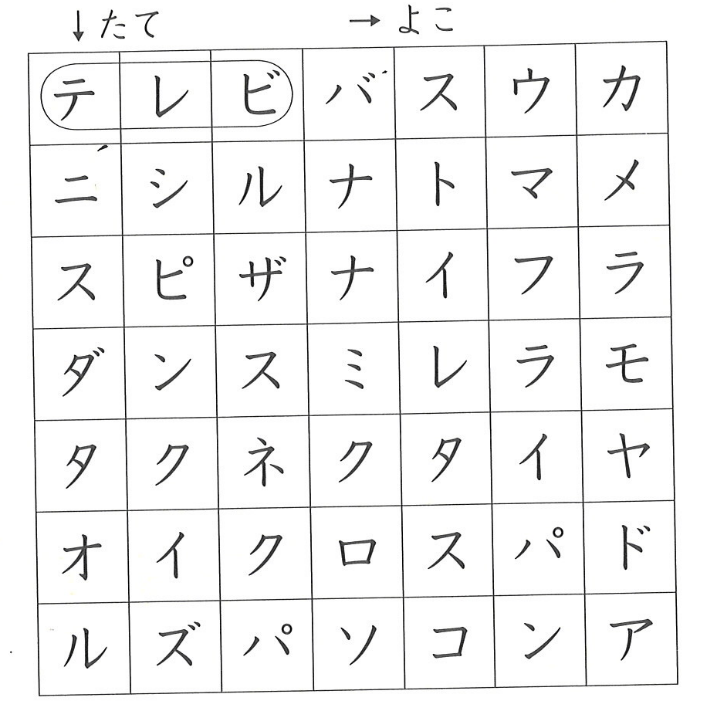 ↓たて →よこ
テ レ ビ バ ス ウ カ
ニ シ ル ナ ト マ メ
ス ピ ザ ナ イ フ ラ
ダ ン ス ミ レ ラ モ
タ ク ネ ク タ イ ヤ
オ イ ク ロ ス パ ド
ル ズ パ ソ コ ン ア